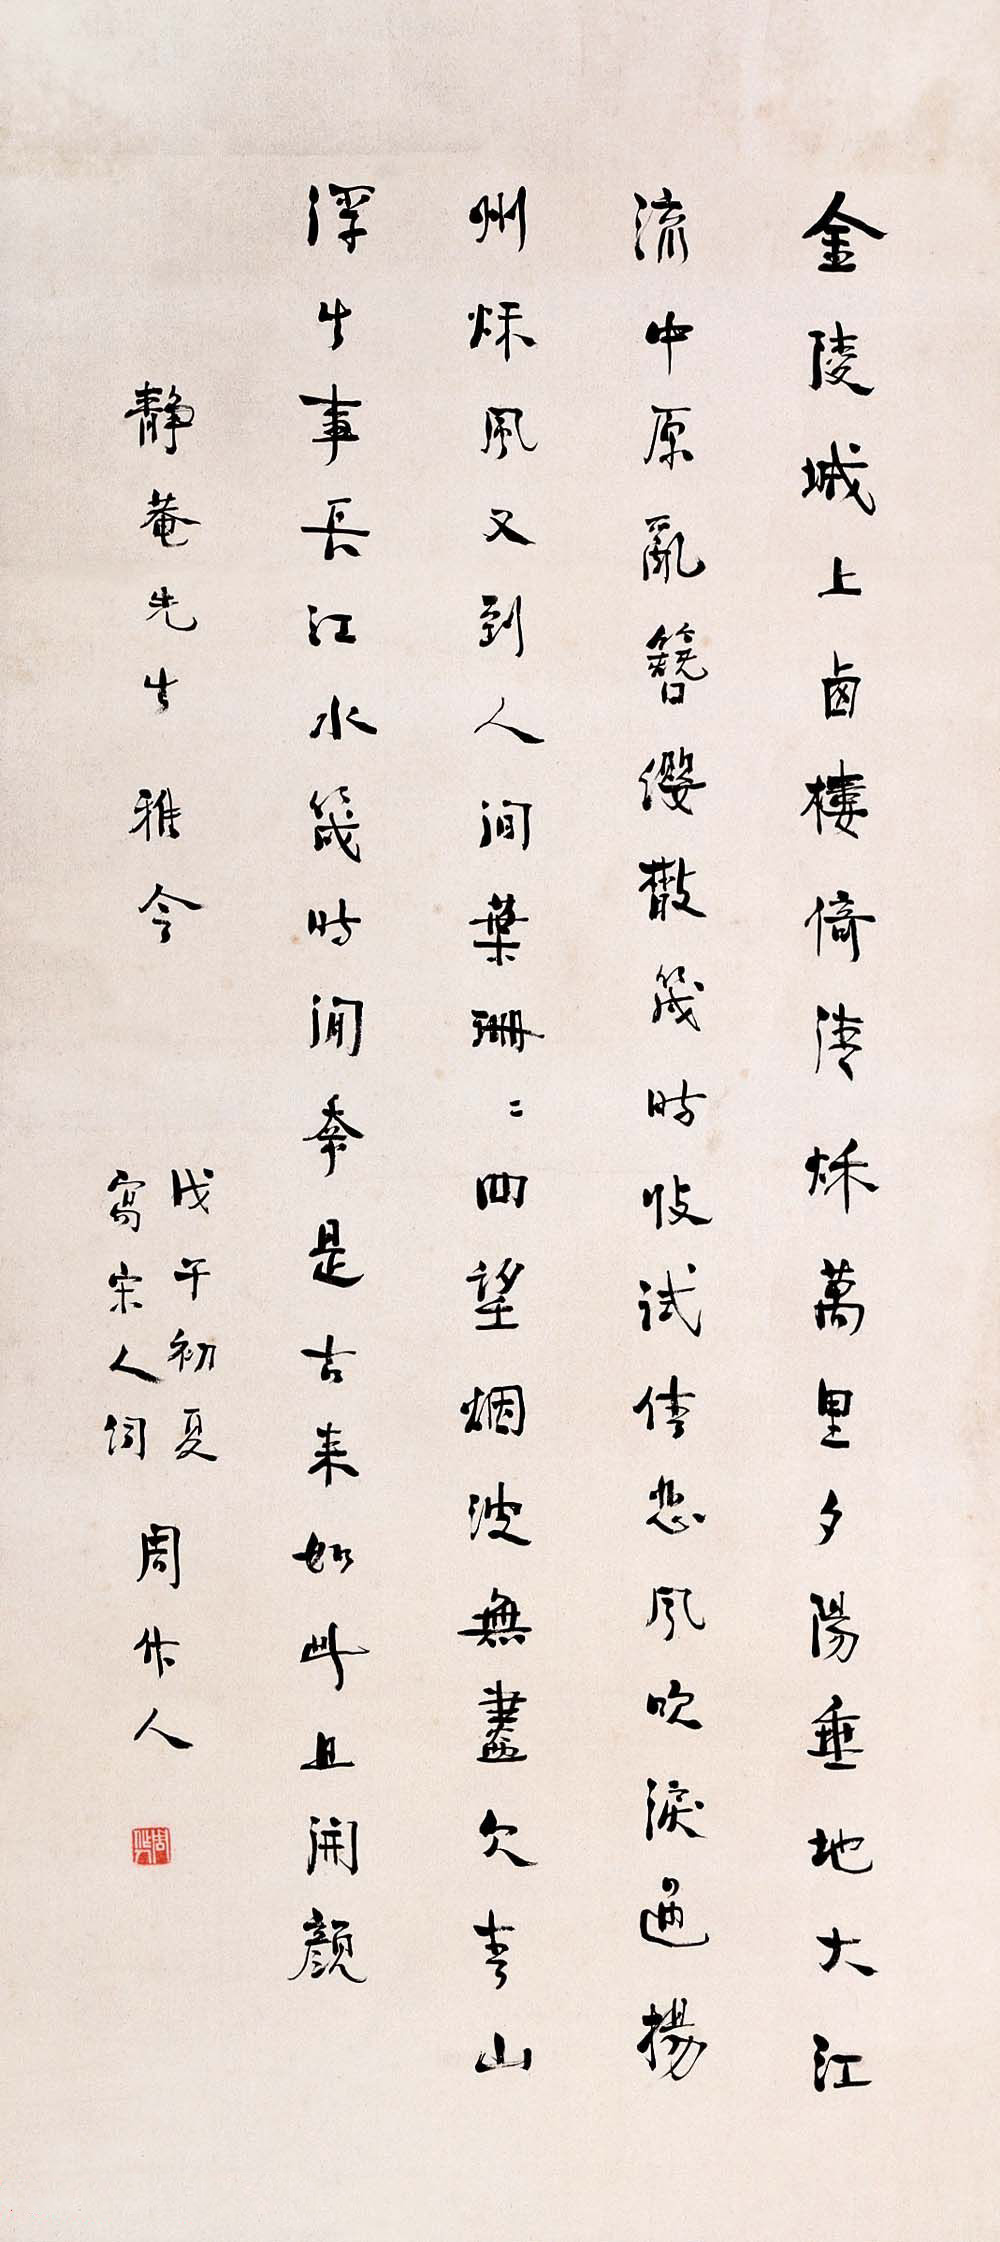 金陵城上卤樓倚清秋萬里夕陽垂地大江
流中原亂簪纓散幾時收試倩悲風吹淚過揚
州秋風又到人間葉珊〻四望烟波無盡欠青山
浮生事長江水幾時閒幸是古来如此且開顏
靜菴先生 雅令
戊午初夏
寫宋人词
周作人